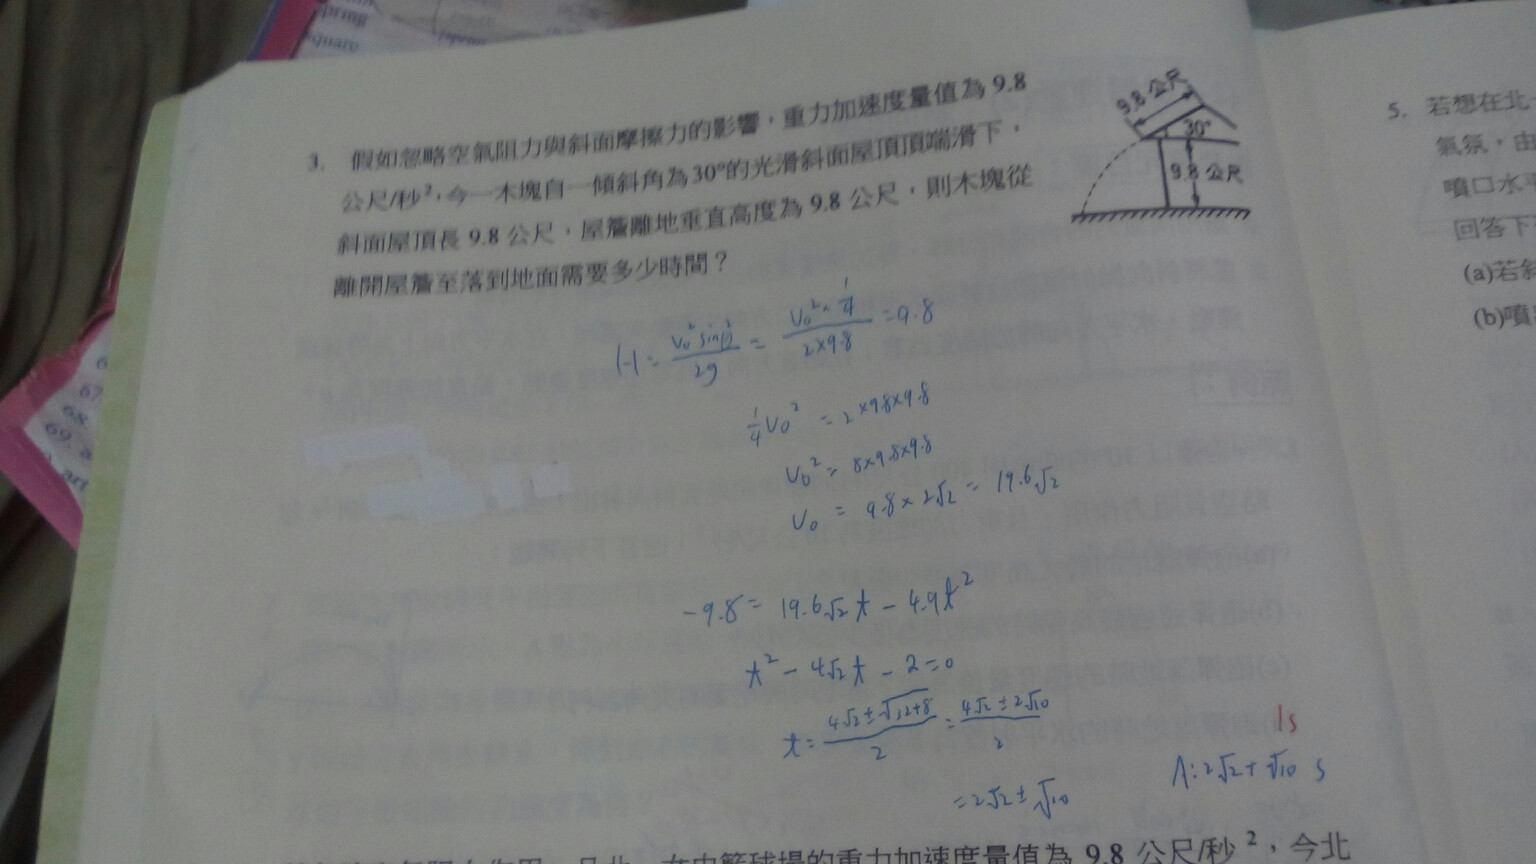 pring
quare
3. 假如忽略空氣阻力與斜面摩擦力的影響，重力加速度量值為 9.8
公尺/秒²，今一木塊自一傾斜角為30°的光滑斜面屋頂頂端滑下，
斜面屋頂長 9.8 公尺，屋簷離地垂直高度為 9.8 公尺，則木塊從
離開屋簷至落到地面需要多少時間？
9.8公尺
30°
9.8公尺
H = V₀² sin²/2g = V₀² × 1/4 / 2×9.8 = 9.8
1/4 V₀² = 2×9.8×9.8
V₀² = 8×9.8×9.8
V₀ = 9.8×2√2 = 19.6√2
-9.8 = 19.6√2 t - 4.9t²
t² - 4√2 t - 2 = 0
t = 4√2 ± √32+8 / 2 = 4√2 ± 2√10 / 2
= 2√2 ± √10
1s
A: 2√2 + √10 s
5. 若想在北
氣氛，由
噴口水平
回答下
(a)若斜
(b)噴
67
68.
69. a
art
的重力加速度量值為 9.8 公尺/秒²，今北